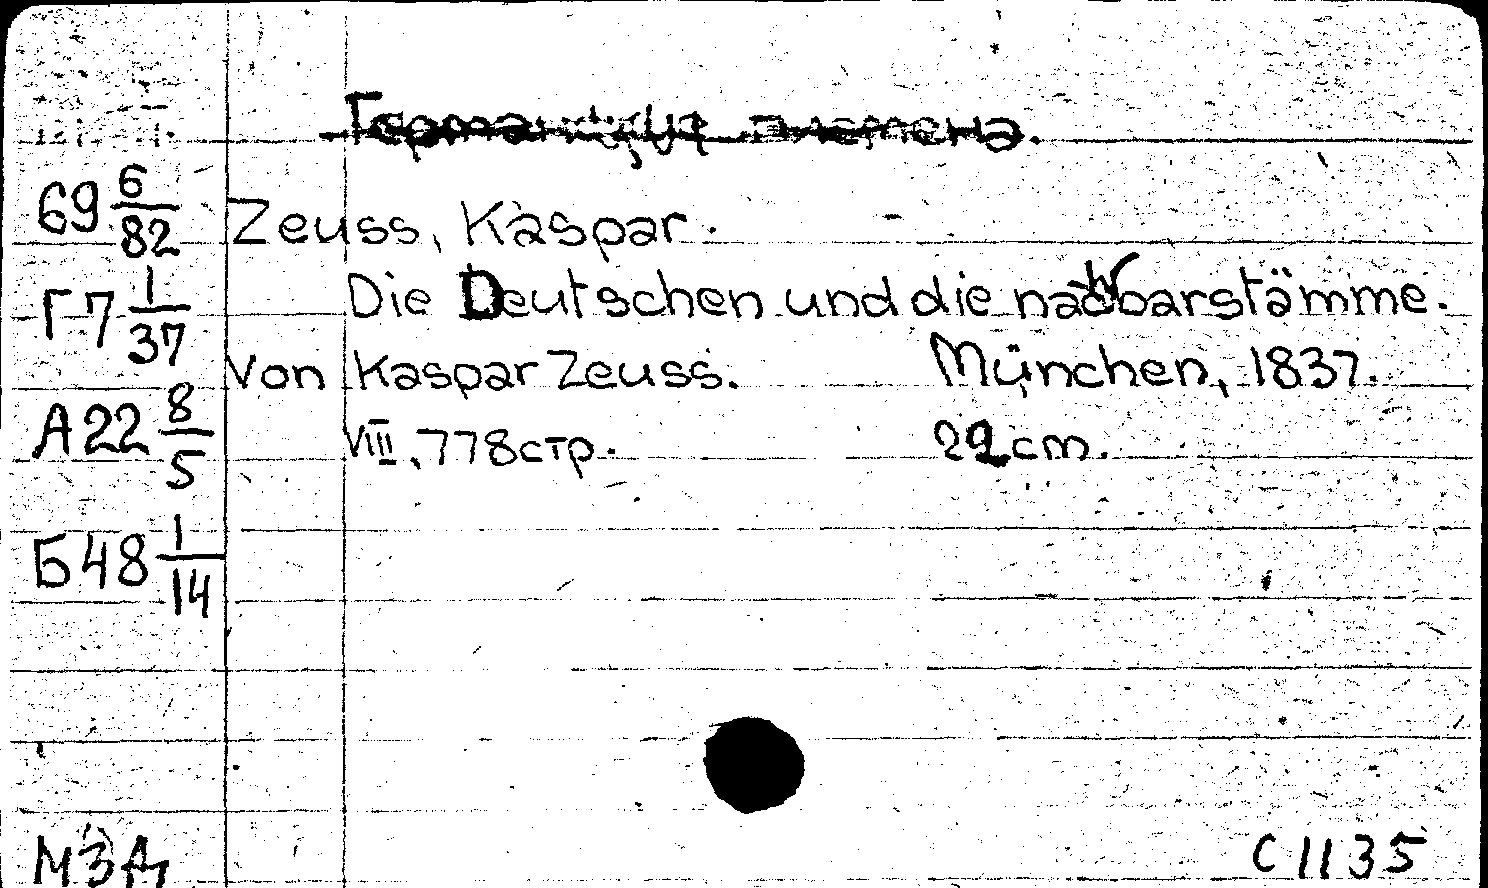 Германскія племена.
69 6/82 Zeuss, Kaspar.
Г7 1/37 Die Deutschen und die nachbarstämme.
Von Kaspar Zeuss. München, 1837.
А22 8/5 VIII, 778 стр. 22 cm.
Б48 1/14
МЗД С1135